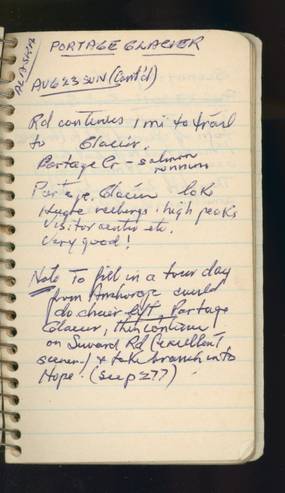 ALASKA
PORTAGE GLACIER
AUG 23 SUN (Cont'd)
Rd continues 1 mi to trail
to Glacier.
Portage Cr - salmon
running
Portage Glacier lake
Huge icebergs, high peaks
Visitor center etc.
Very good!
Note To fill in a tour day
from Anchorage could
do chair lift, Portage
Glacier, then continue
on Seward Rd (excellent
scenery) & take branch into
Hope. (see p 277)